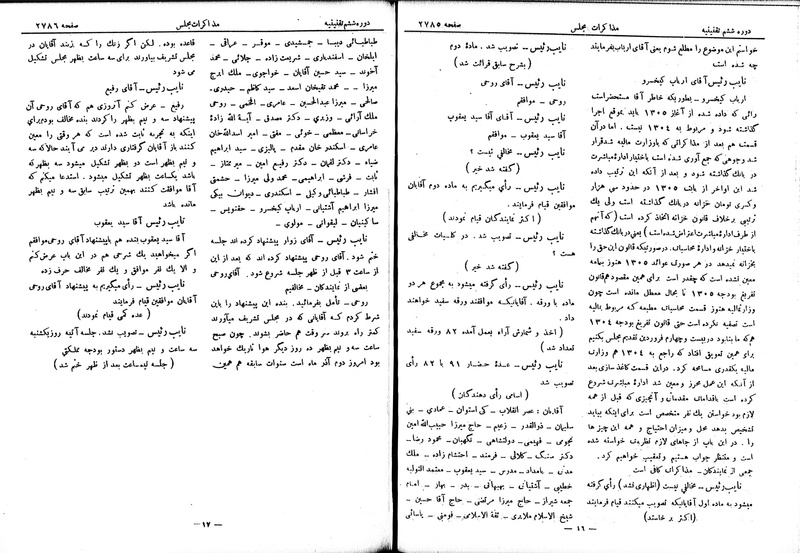 دوره ششم تقنینیه
مذاکرات مجلس
صفحه ۲۷۸۵
خواستم این موضوع را مطلع شوم یعنی آقای ارباب بفرمایند
چه شده است
نایب رئیس - آقای ارباب کیخسرو
ارباب کیخسرو - بطوریکه خاطر آقا مستحضر است
رائی که داده شده از آغاز ۱۳۰۵ باید بموقع اجرا
گذاشته شود و مربوط به ۱۳۰۴ نیست . اما در آن
قسمت هم بعد از مذاکراتی که با وزارت مالیه شد قرار
شد وجوهی که جمع آوری شده است باختیار اداره مباشرت
در بانک گذاشته شود و بعد از آنکه این ترتیب داده
شد این اواخر از بابت ۱۳۰۵ در حدود سی هزار
و کسری تومان خزانه در بانک گذاشته است ولی یک
ترتیبی برخلاف قانون خزانه اتخاذ کرده است (که آنهم
از طرف اداره مباشرت اعتراض شده است) یعنی در بانک گذاشته
باختیار خزانه و اداره محاسبات. در صورتیکه قانون این حق را
بخزانه نمیدهد در هر صورت عوائد ۱۳۰۵ هنوز بمامه
معین نشده است که چقدر است برای همین مقصود هم قانون
تفریغ بودجه ۱۳۰۵ تا بحال معطل مانده است چون
وزارت مالیه هنوز قسمت محاسبات مطبعه که مربوط بمالیه
است تصفیه نکرده است حتی قانون تفریغ بودجه ۱۳۰۴
هم که ما بنا بود در بیست و چهارم فروردین تقدیم مجلس بکنیم
برای همین تعویق افتاد که راجع به ۱۳۰۴ هم وزارت
مالیه بکقدری مسامحه کرد. در این قسمت کاغذ سازی بعد
از آنکه این عمل محرز و معین شد اداره مباشرت شروع
کرده است باقدامات مقدماتی و آنچیزی که قبل از همه
لازم بود خواستن یک نفر متخصص است برای اینکه بیاید
تشخیص بدهد محل و میزان احتیاج و همه این چیزها
را . در این باب از جاهای لازم نظریات خواسته شده
است و منتظر جواب هستیم و تعقیب خواهیم کرد.
جمعی از نمایندگان - مذاکرات کافی است
نایب رئیس - مخالفی نیست (اظهاری نشد) رأی گرفته
میشود به ماده اول آقایانیکه تصویب میکنند قیام فرمایند
(اکثر برخاستند)
نایب رئیس - تصویب شد . ماده دوم
(بشرح سابق قرائت شد)
نایب رئیس - آقای روحی
روحی - موافقم
نایب رئیس - آقای آقا سید یعقوب
آقا سید یعقوب - موافقم
نایب رئیس - مخالفی نیست ؟
(گفته شد خیر)
نایب رئیس - رأی میگیریم به ماده دوم آقایان
موافقین قیام فرمایند .
(اکثر نمایندگان قیام نمودند)
نایب رئیس - تصویب شد . در کلیات مخالفی
هست ؟
(گفته شد خیر)
نایب رئیس - رأی گرفته میشود به مجموع هر دو
ماده با ورقه . آقایانیکه موافقند ورقه سفید خواهند
داد .
( اخذ و شمارش آراء بعمل آمده ۸۲ ورقه سفید
تعداد شد )
نایب رئیس - عده حضار ۹۱ با ۸۲ رأی
تصویب شد
(اسامی رأی دهندگان)
آقایان : عصر انقلاب - کی استوان - عمادی - بنی
سلیمان - ذوالقدر - زعیم - حاج میرزا حبیب الله امین
نجومی - فهیمی - دولتشاهی - نگهبان - محمود رضا -
دکتر سنگ - کلالی - فرمند - احتشام زاده - ملک
مدنی - بامداد - مدرس - سید یعقوب - معتمد التولیه
خطیبی - آشتیانی - بهبهانی - بدر - بهار - امام
جمعه شیراز - حاج میرزا مرتضی - حاج آقا حسین -
شیخ الاسلام ملایری - ثقة الاسلامی - فومنی - یاسائی
- ۱۶ -
دوره ششم تقنینیه
مذاکرات مجلس
صفحه ۲۷۸۶
طباطبائی دیبا - جمشیدی - موقر - عراقی -
ایلخان - اسفندیاری - شریعت زاده - جلائی - محمد
آخوند - سید حسین آقایان - خواجوی - ملک ایرج
میرزا - محمد تقیخان اسعد - سید کاظم - حیدری -
صالحی - میرزا عبدالحسین - عامری - افخمی - روحی
ملک آرائی - وزیری - دکتر مصدق - آیة الله زاده
خراسانی - معظمی - خوئی - مفتی - امیر اسدالله خان
عامری - اسکندر خان مقدم - پالیزی - سید ابراهیم
ضیاء - دکتر لقمان - دکتر رفیع امین - میر ممتاز -
ثابت - قرشی - ابراهیمی - محمد ولی میرزا - حشمتی
افشار - طباطبائی وکیلی - اسکندری - دیوان بیگی
میرزا ابراهیم آشتیانی - ارباب کیخسرو - حقنویس -
ساکینیان - لیقوانی - مولوی -
نایب رئیس - آقای زوار پیشنهاد کرده اند جلسه
ختم شود . آقای روحی پیشنهاد کرده اند که بعد از این
از ساعت ۳ قبل از ظهر جلسه شروع شود . آقای روحی
بعضی از نمایندگان - مخالفیم
روحی - تأمل بفرمائید . بنده این پیشنهاد را باین
شرط کردم که آقایانی که در مجلس تشریف میآورند
کمتر راه بروند سر وقت هم حاضر بشوند . چون صبح
سه ساعت و نیم بظهر ده روز دیگر هوا تاریک خواهد
بود امروز دوم آذر ماه است سنوات سابقه هم همین
قاعده بوده . لکن اگر زنگ را که بزنند آقایان در
مجلس تشریف بیاورند برای سه ساعت بظهر مجلس تشکیل
می شود
نایب رئیس - آقای رفیع
رفیع - عرض کنم آنروزی هم که آقای روحی آن
پیشنهاد سه و نیم بظهر را کردند بنده مخالف بودم برای
اینکه به تجربه ثابت شده است که هر وقتی را معین
کنند باز آقایان گرفتاری دارند دیر می آیند حالا که سه
و نیم بظهر است در بظهر تشکیل میشود سه بظهر که
باشد یکساعت بظهر تشکیل میشود . استدعا میکنم که
آقا موافقت کنند بهمین ترتیب سابق سه و نیم بظهر
مانده باشد
نایب رئیس - آقا سید یعقوب
آقا سید یعقوب - بنده هم با پیشنهاد آقای روحی موافقم
اگر میخواهید یک شرحی هم در این باب عرض کنم
و الا یک نفر موافق و یک نفر مخالف حرف زده
نایب رئیس - رأی میگیریم به پیشنهاد آقای روحی
آقایان موافقین قیام فرمایند
(عده کمی قیام نمودند)
نایب رئیس - تصویب نشد . جلسه آتیه روز یکشنبه
سه ساعت و نیم بظهر دستور بودجه مملکتی
(جلسه نیم ساعت بعد از ظهر ختم شد)
- ۱۷ -